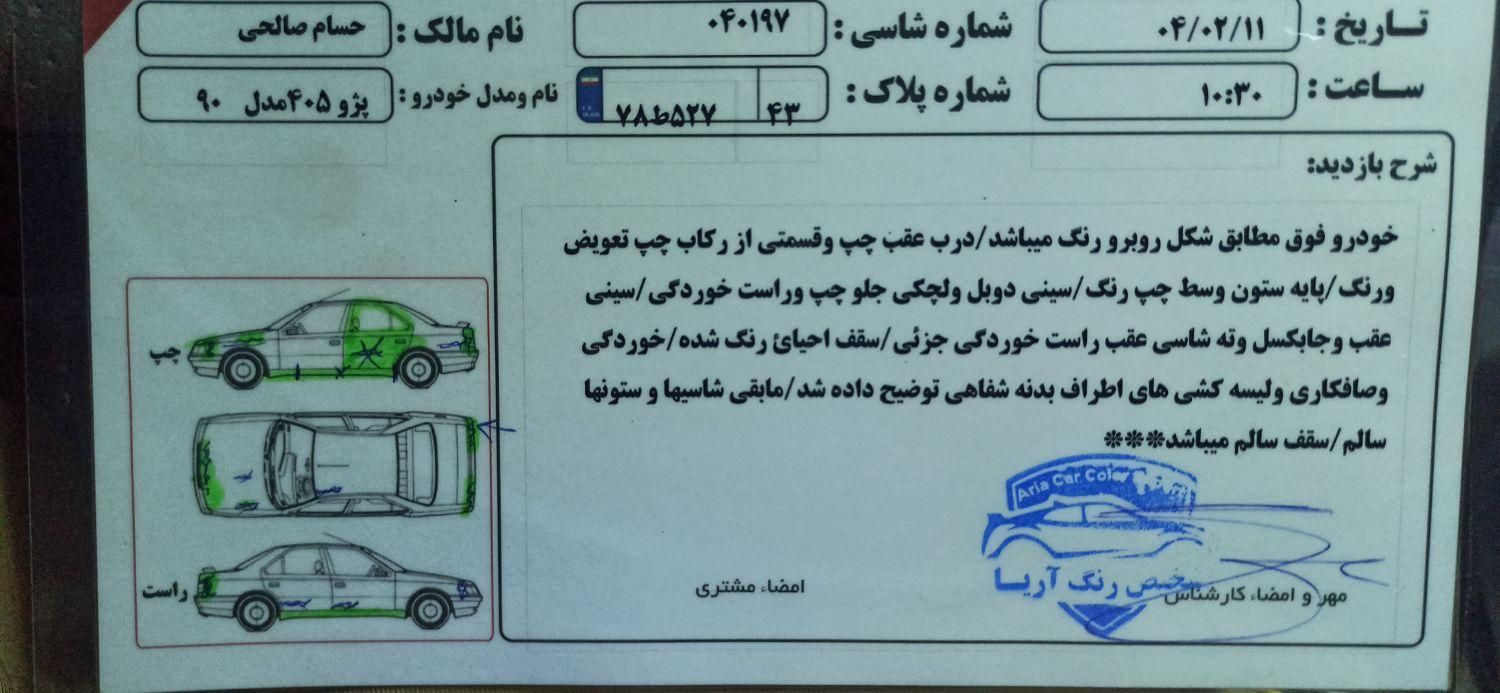 تاریخ : ۰۴/۰۲/۱۱
شماره شاسی : ۰۴۰۱۹۷
نام مالک : حسام صالحی
ساعت : ۱۰:۳۰
شماره پلاک : ۴۳ ۵۲۷ط۷۸
نام ومدل خودرو : پژو ۴۰۵مدل ۹۰
شرح بازدید:
خودرو فوق مطابق شکل روبرو رنگ میباشد/درب عقب چپ وقسمتی از رکاب چپ تعویض
ورنگ/پایه ستون وسط چپ رنگ/سینی دوبل ولچکی جلو چپ وراست خوردگی/سینی
عقب وجابکسل وته شاسی عقب راست خوردگی جزئی/سقف احیائ رنگ شده/خوردگی
وصافکاری ولیسه کشی های اطراف بدنه شفاهی توضیح داده شد/مابقی شاسیها و ستونها
سالم/سقف سالم میباشد***
چپ
راست
Aria Car Color
رنگ آریا
مهر و امضاء کارشناس
امضاء مشتری